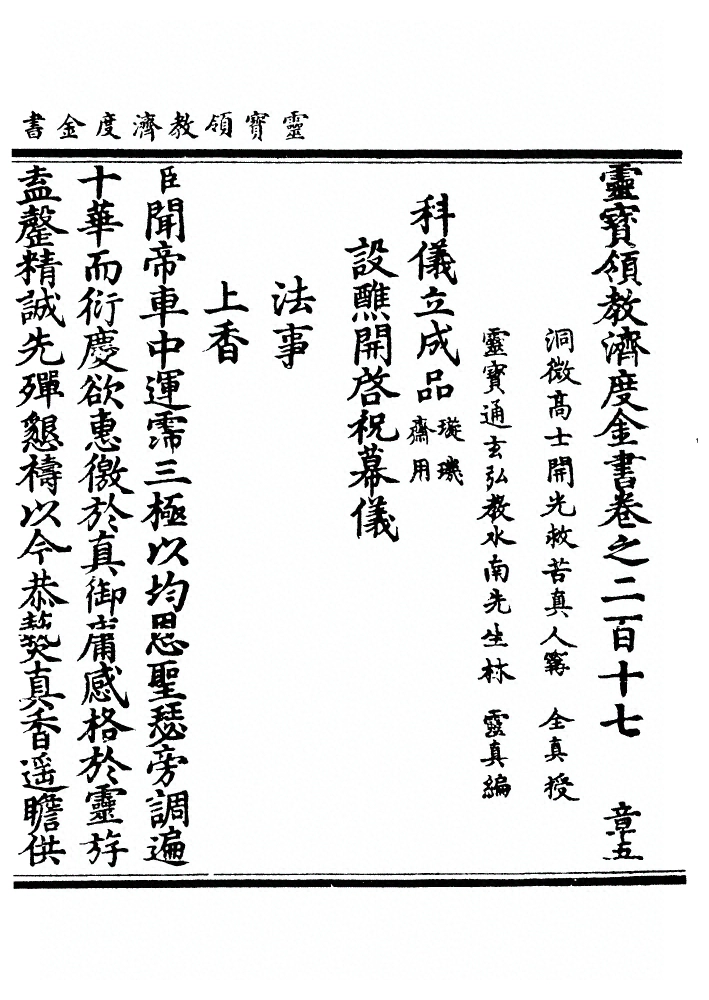 靈寶領教濟度金書
靈寶領教濟度金書卷之二百十七　章五
洞微高士開光救苦真人甯　全真授
靈寶通玄弘教水南先生林　靈真編
科儀立成品璇璣齋用
設醮開啓祝幕儀
法事
上香
臣聞帝車中運霈三極以均恩聖瑟旁調遍
十華而衍慶欲惠徼於真御庸感格於靈斿
盍罄精誠先殫懇禱以今恭爇真香遥瞻供